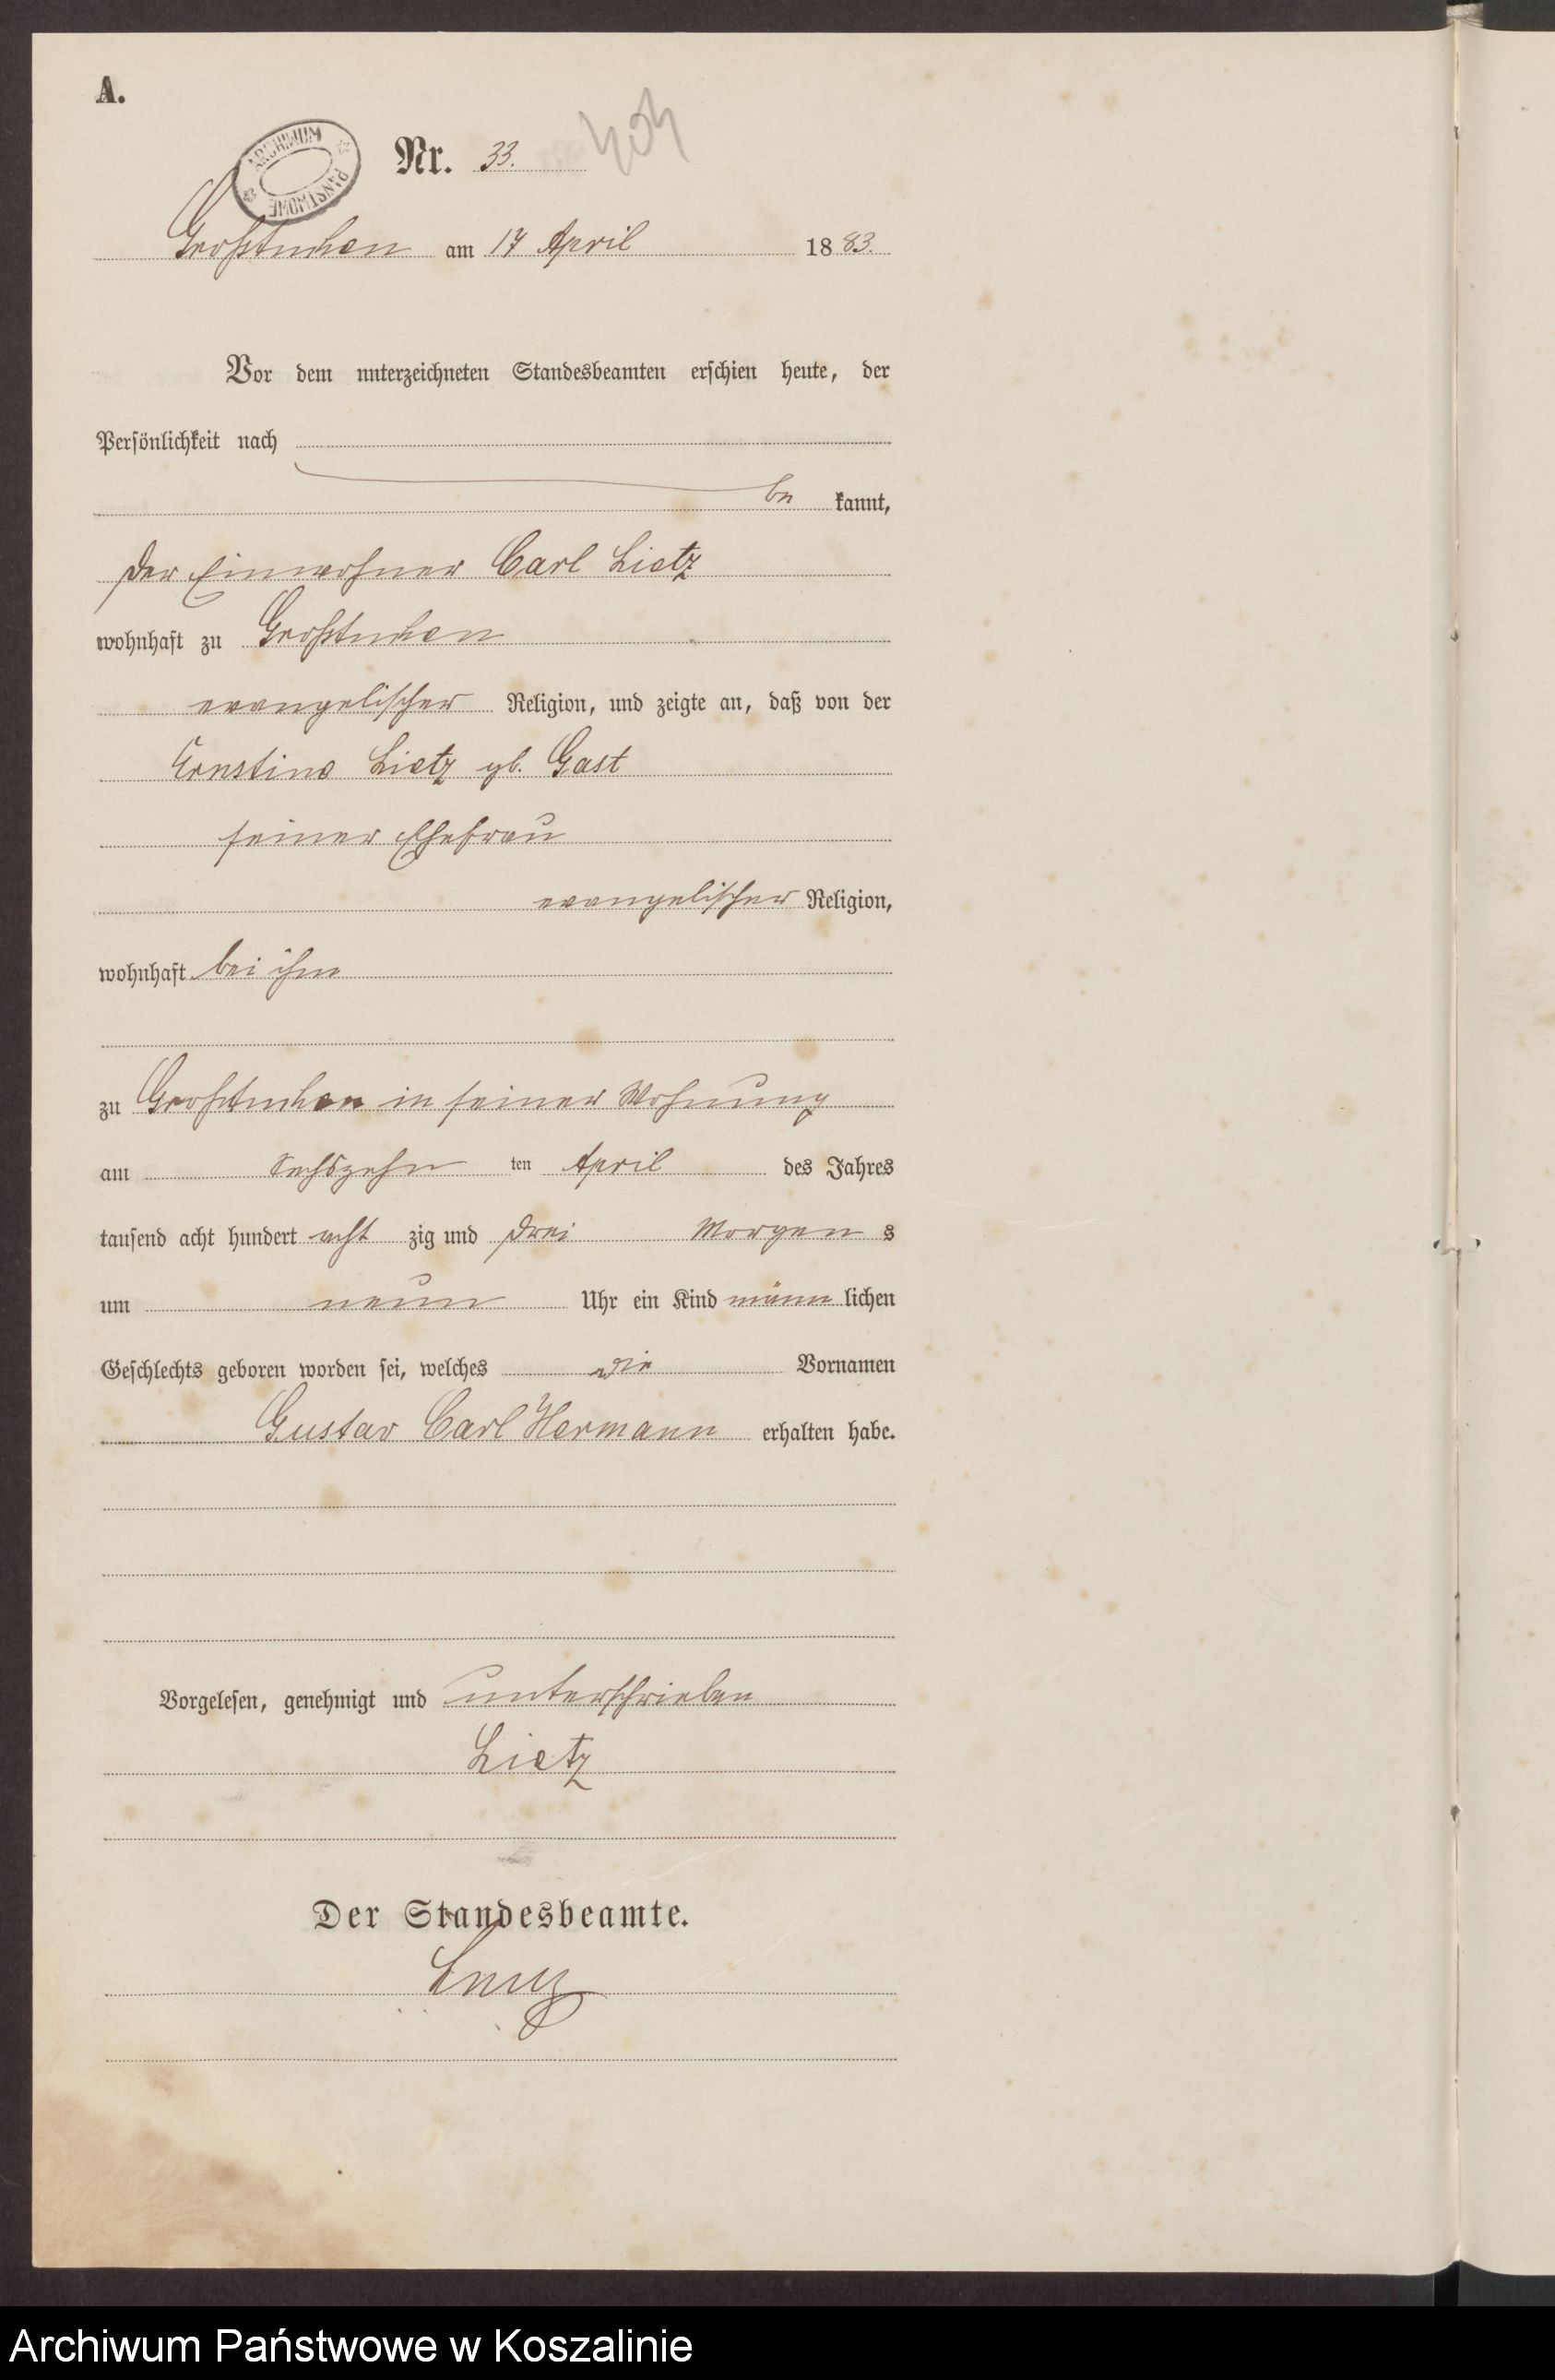 A.
ARCHIWUM PAŃSTWOWE
Nr. 33.
Großtuchen am 17 April 1883.
Vor dem unterzeichneten Standesbeamten erschien heute, der
Persönlichkeit nach
be kannt,
der Einwohner Carl Lietz
wohnhaft zu Großtuchen
evangelischer Religion, und zeigte an, daß von der
Ernstine Lietz gb. Gast
seiner Ehefrau
evangelischer Religion,
wohnhaft bei ihm
zu Großtuchen in seiner Wohnung
am Sechszehn ten April des Jahres
tausend acht hundert acht zig und drei Morgen s
um neun Uhr ein Kind männ lichen
Geschlechts geboren worden sei, welches die Vornamen
Gustav Carl Hermann erhalten habe.
Vorgelesen, genehmigt und unterschrieben
Lietz
Der Standesbeamte.
Archiwum Państwowe w Koszalinie